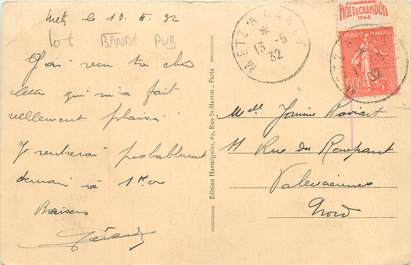 Metz, le 13.5.32
lot BANDE PUB
J'ai reçu ta chère
lettre qui m'a fait
réellement plaisir.
Je rentrerai probablement
demain à 1h
Baisers
Gérard
Edition Hermignies, 69, Rue St-Martin - Paris
METZ
13 -5
32
CHAMPAGNE
MOËT & CHANDON
1743
50
32
Melle Janine
11 Rue du Rempart
Valenciennes
Nord